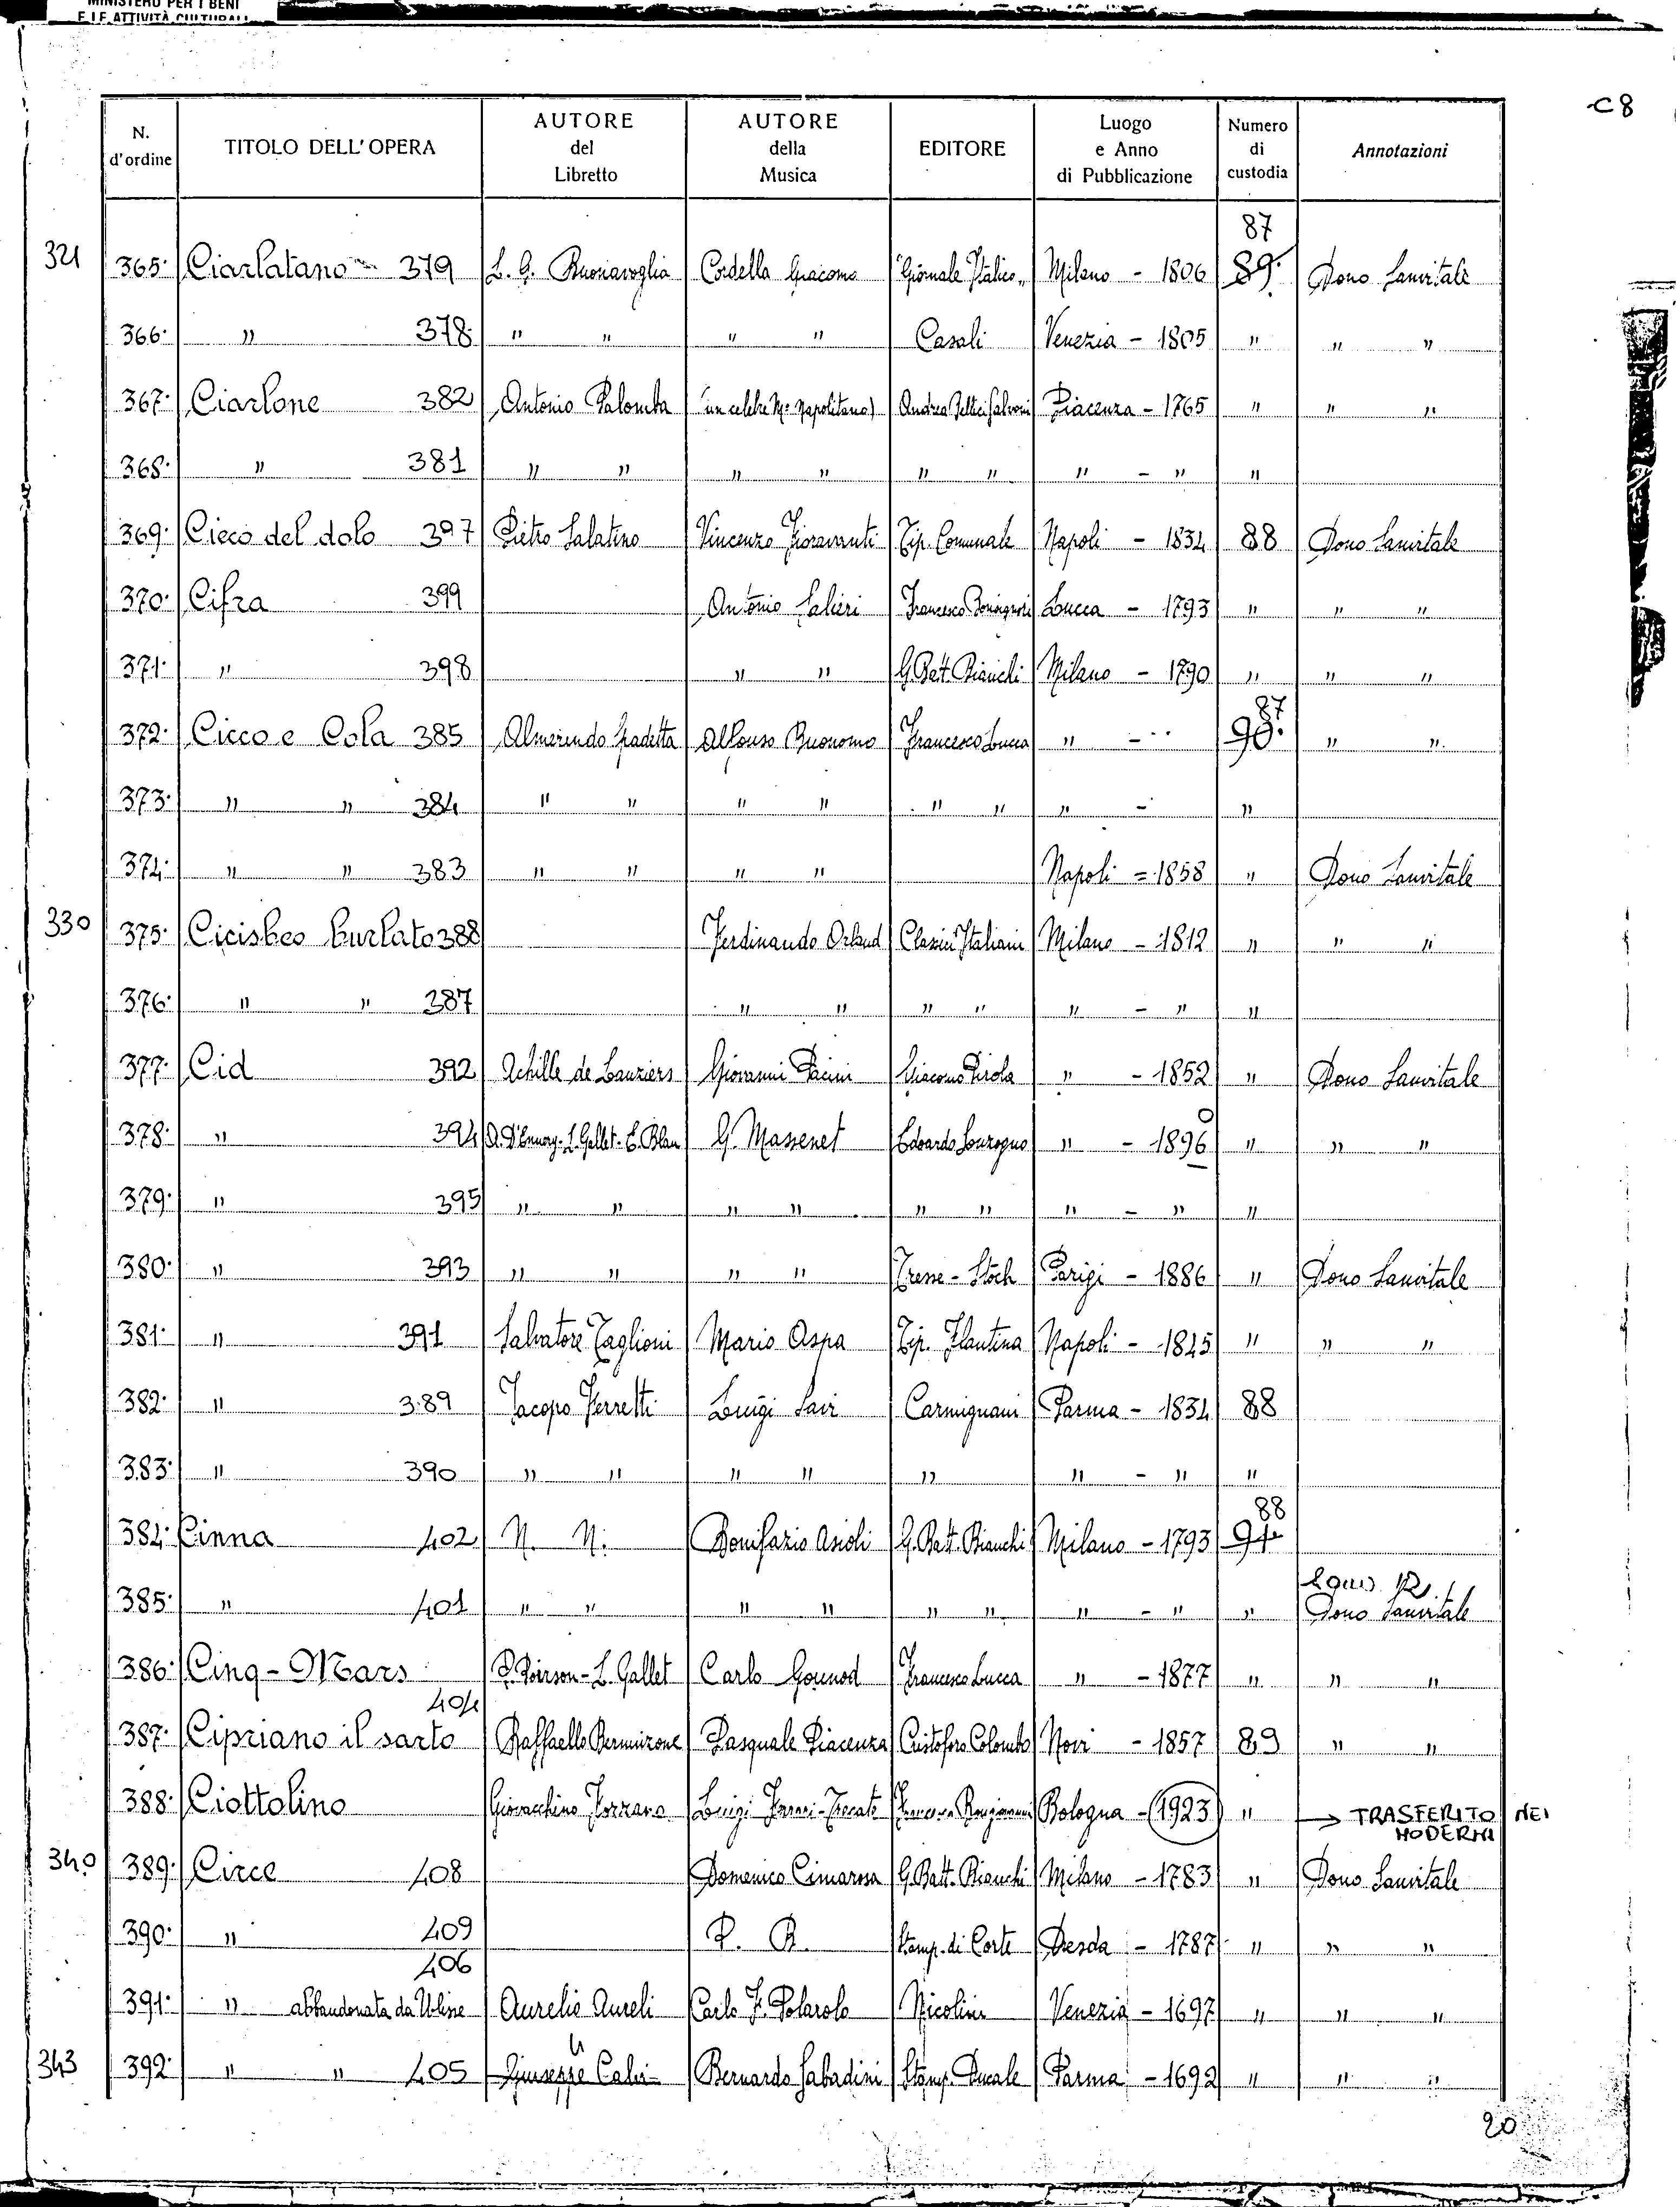 MINISTERO PER I BENI
E LE ATTIVITÀ CULTURALI
C8
N. d'ordine TITOLO DELL'OPERA AUTORE del Libretto AUTORE della Musica EDITORE Luogo e Anno di Pubblicazione Numero di custodia Annotazioni
87
321 365. Ciarlatano 379 L. G. Buonavoglia Cordella Giacomo "Giornale Italico" Milano - 1806 89. Dono Sanvitale
366. " 378 " " " " Casali Venezia - 1805 " " "
367. Ciarlone 382 Antonio Palomba (un celebre Mo napolitano) Andrea Bellici Salvoni Piacenza - 1765 " " "
368. " 381 " " " " " " " - " "
369. Cieco del dolo 397 Pietro Salatino Vincenzo Fioravanti Tip. Comunale Napoli - 1834 88 Dono Sanvitale
370. Cifra 399 Antonio Salieri Francesco Bonsignori Lucca - 1793 " " "
371. " 398 " " G. Bat. Bianchi Milano - 1790 " " "
87
372. Cicco e Cola 385 Almerindo Spadetta Alfonso Buonomo Francesco Lucca " - " 90. " "
373. " " 384 " " " " " " " - "
374. " " 383 " " " " Napoli - 1858 " Dono Sanvitale
330 375. Cicisbeo burlato 388 Ferdinando Orland Classici Italiani Milano - 1812 " " "
376. " " 387 " " " " " - " "
377. Cid 392 Achille de Lauziers Giovanni Pacini Giacomo Pirola " - 1852 " Dono Sanvitale
378. " 394 A. D'Ennery - L. Gallet - E. Blau G. Massenet Edoardo Sonzogno " - 1896 " " "
0
379. " 395 " " " " " " " - " "
380. " 393 " " " " Tresse - Stoch Parigi - 1886 " Dono Sanvitale
381. " 391 Salvatore Taglioni Mario Aspa Tip. Flautina Napoli - 1845 " " "
382. " 389 Jacopo Ferretti Luigi Savi Carmignani Parma - 1834 88
383. " 390 " " " " " " - " "
88
384. Cinna 402 N. N. Bonifazio Asioli G. Bat. Bianchi Milano - 1793 91
385. " 401 " " " " " " " - " " Dono Sanvitale
386. Cinq-Mars P. Poirson - L. Gallet Carlo Gounod Francesco Lucca " - 1877 " " "
404
387. Cipriano il sarto Raffaello Berninzone Pasquale Piacenza Cristoforo Colombo Novi - 1857 89 " "
388. Ciottolino Giovacchino Forzano Luigi Ferrari-Trecate Francesco Bongiovanni Bologna - 1923 " → TRASFERITO NEI
MODERNI
340 389. Circe 408 Domenico Cimarosa G. Batt. Bianchi Milano - 1783 " Dono Sanvitale
390. " 409 Stamp. di Corte Dresda - 1787 " " "
406
391. " abbandonata da Ulisse Aurelio Aureli Carlo F. Polarolo Nicolini Venezia - 1697 " " "
343 392. " " 405 Giuseppe Calvi Bernardo Sabadini Stamp. Ducale Parma - 1692 " " "
20